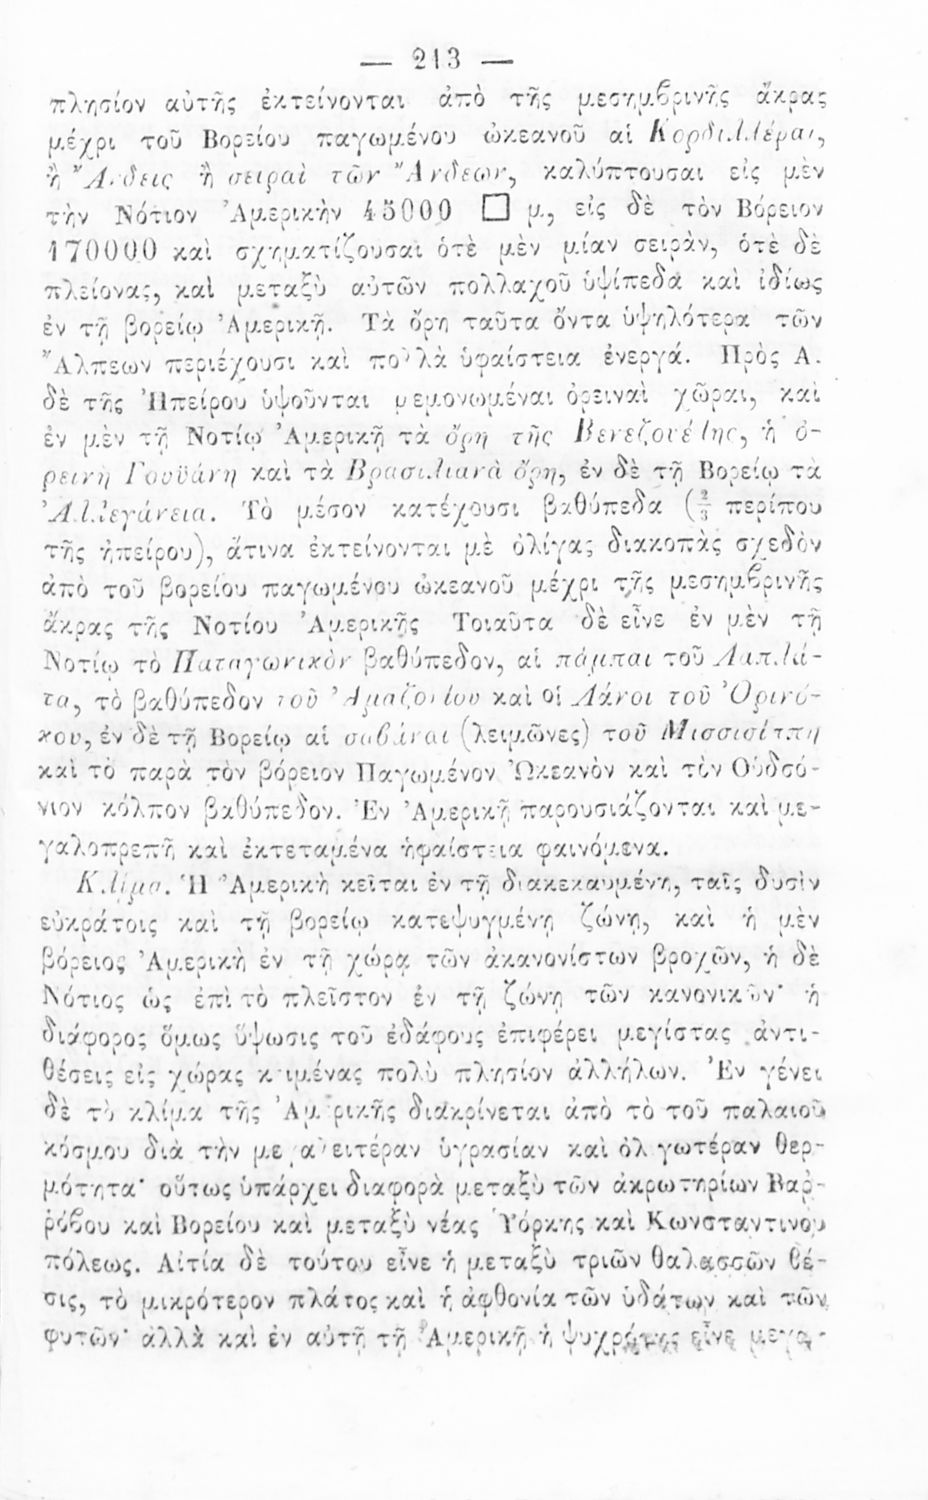 — 213 —
πλησίον αὐτῆς ἐκτείνονται ἀπὸ τῆς μεσημβρινῆς ἄκρας
μέχρι τοῦ Βορείου παγωμένου ὠκεανοῦ αἱ Κορδιλλέραι,
ἢ Ἄνδεις ἢ σειραὶ τῶν Ἄνδεων, καλύπτουσαι εἰς μὲν
τὴν Νότιον Ἀμερικὴν 45000 □ μ, εἰς δὲ τὸν Βόρειον
170000 καὶ σχηματίζουσαι ὁτὲ μὲν μίαν σειρὰν, ὁτὲ δὲ
πλείονας, καὶ μεταξὺ αὐτῶν πολλαχοῦ ὑψίπεδα καὶ ἰδίως
ἐν τῇ βορείῳ Ἀμερικῇ. Τὰ ὄρη ταῦτα ὄντα ὑψηλότερα τῶν
Ἄλπεων περιέχουσι καὶ πολλὰ ὑφαίστεια ἐνεργά. Πρὸς Α.
δὲ τῆς Ἠπείρου ὑψοῦνται μεμονωμέναι ὀρειναὶ χῶραι, καὶ
ἐν μὲν τῇ Νοτίῳ Ἀμερικῇ τὰ ὄρη τῆς Βενεζουέλης, ἡ ὀ-
ρεινὴ Γουϋάνη καὶ τὰ Βρασιλιανὰ ὄρη, ἐν δὲ τῇ Βορείῳ τὰ
Ἀλλεγάνεια. Τὸ μέσον κατέχουσι βαθύπεδα (⅔ περίπου
τῆς ἠπείρου), ἅτινα ἐκτείνονται μὲ ὀλίγας διακοπὰς σχεδὸν
ἀπὸ τοῦ βορείου παγωμένου ὠκεανοῦ μέχρι τῆς μεσημβρινῆς
ἄκρας τῆς Νοτίου Ἀμερικῆς Τοιαῦτα δὲ εἶνε ἐν μὲν τῇ
Νοτίῳ τὸ Παταγωνικὸν βαθύπεδον, αἱ πάμπαι τοῦ Λαπλά-
τα, τὸ βαθύπεδον τοῦ Ἀμαζονίου καὶ οἱ Λάνοι τοῦ Ὀρινό-
κου, ἐν δὲ τῇ Βορείῳ αἱ σαβάναι (λειμῶνες) τοῦ Μισσισίππη
καὶ τὸ παρὰ τὸν βόρειον Παγωμένον Ὠκεανὸν καὶ τὸν Οὐδσό-
νιον κόλπον βαθύπεδον. Ἐν Ἀμερικῇ παρουσιάζονται καὶ με-
γαλοπρεπῆ καὶ ἐκτεταμένα ἡφαίστεια φαινόμενα.
Κλίμα. Ἡ Ἀμερικὴ κεῖται ἐν τῇ διακεκαυμένῃ, ταῖς δυσὶν
εὐκράτοις καὶ τῇ βορείῳ κατεψυγμένῃ ζώνῃ, καὶ ἡ μὲν
βόρειος Ἀμερικὴ ἐν τῇ χώρᾳ τῶν ἀκανονίστων βροχῶν, ἡ δὲ
Νότιος ὡς ἐπὶ τὸ πλεῖστον ἐν τῇ ζώνῃ τῶν κανονικῶν· ἡ
διάφορος ὅμως ὕψωσις τοῦ ἐδάφους ἐπιφέρει μεγίστας ἀντι-
θέσεις εἰς χώρας κειμένας πολὺ πλησίον ἀλλήλων. Ἐν γένει
δὲ τὸ κλίμα τῆς Ἀμερικῆς διακρίνεται ἀπὸ τὸ τοῦ παλαιοῦ
κόσμου διὰ τὴν μεγαλειτέραν ὑγρασίαν καὶ ὀλιγωτέραν θερ-
μότητα· οὕτως ὑπάρχει διαφορὰ μεταξὺ τῶν ἀκρωτηρίων Βαρ-
ρόβου καὶ Βορείου καὶ μεταξὺ νέας Ὑόρκης καὶ Κωνσταντινου
πόλεως. Αἰτία δὲ τούτου εἶνε ἡ μεταξὺ τριῶν θαλασσῶν θέ-
σις, τὸ μικρότερον πλάτος καὶ ἡ ἀφθονία τῶν ὑδάτων καὶ τῶν
φυτῶν· ἀλλὰ καὶ ἐν αὐτῇ τῇ Ἀμερικῇ ἡ ψυχρότης εἶνε μεγα-